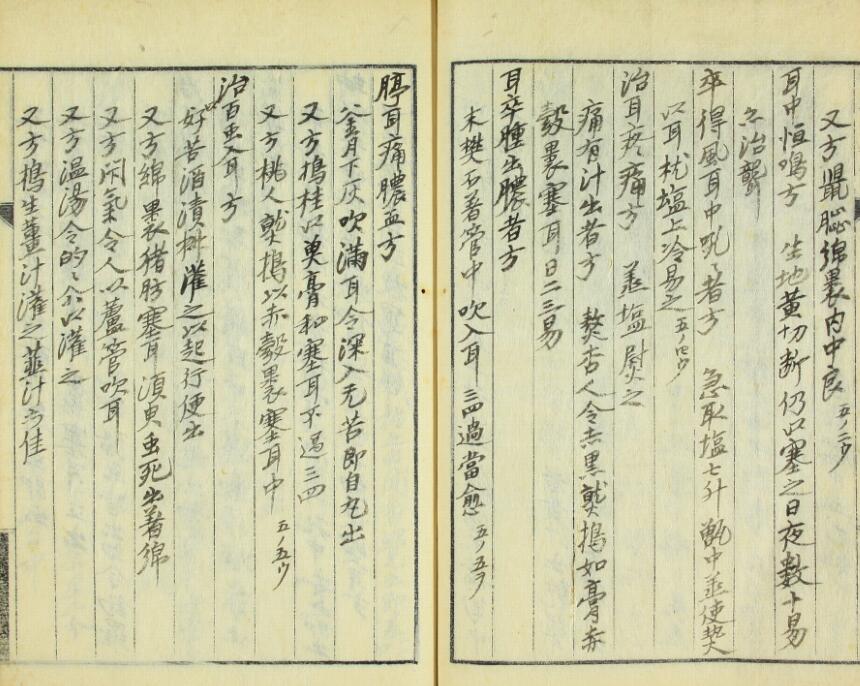 又方 鼠𦠄綿裹內中良 五ノ二ウ
耳中恒鳴方 生地黄切断仍以塞之日夜數十易
亦治聾
卒得風耳中吼々者方 急取塩七升甑中蒸使熱
以耳枕塩上冷易之 五ノ四ウ
治耳疼痛方 蒸塩熨之
痛有汁出者方 熬杏人令赤黒熟搗如膏赤
縠裹塞耳日二三易
耳卒腫出膿者方
末樊石著管中吹入耳三四過當愈 五ノ五ヲ
聤耳痛膿血方
釜月下灰吹滿耳令深入无苦即自丸出
又方搗桂以奠膏和塞耳不過三四
又方桃人熟搗以赤縠裹塞耳中 五ノ五ウ
治百虫入耳方
好苦酒漬椒灌之以起行便出
又方綿裹猪肪塞耳須臾虫死出著綿
又方閇氣令人以蘆管吹耳
又方温湯令的々尒以灌之
又方搗生薑汁灌之韮汁亦佳